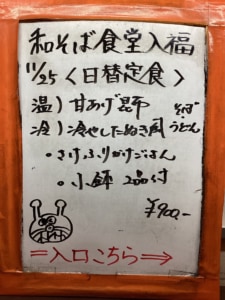 和そば食堂入福
11/25〈日替定食〉
温）甘あげ昆布 そば
冷）冷やしたぬき風 うどん
・さけふりかけごはん
・小鉢 2品付
¥900-
⇒入口こちら⇒